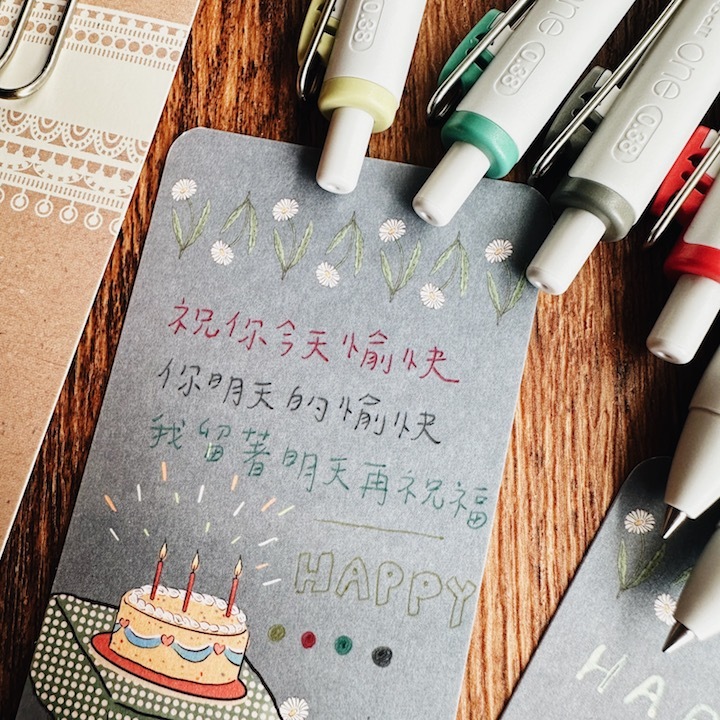 one 0.38
one 0.38
one 0.38
祝你今天愉快
你明天的愉快
我留著明天再祝福
HAPPY
HAP